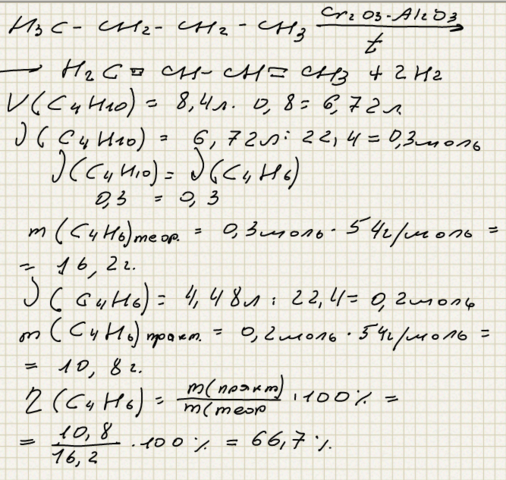 H3C - CH2 - CH2 - CH3 Cr2O3-Al2O3
t
→ H2C = CH - CH = CH3 + 2H2
V(C4H10) = 8,4л. 0,8 = 6,72л
ν(C4H10) = 6,72л : 22,4 = 0,3моль
ν(C4H10) = ν(C4H6)
0,3 = 0,3
m(C4H6)теор. = 0,3моль · 54г/моль =
= 16,2г.
ν(C4H6) = 4,48л : 22,4 = 0,2моль
m(C4H6)практ. = 0,2моль · 54г/моль =
= 10,8г.
η(C4H6) = m(практ)/m(теор · 100% =
= 10,8/16,2 · 100% = 66,7%.